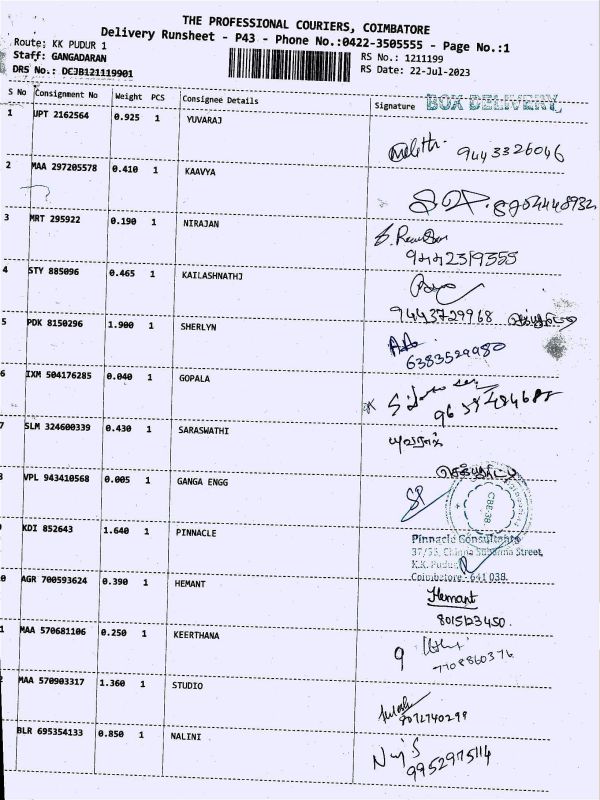 THE PROFESSIONAL COURIERS, COIMBATORE
Delivery Runsheet - P43 - Phone No.:0422-3505555 - Page No.:1
Route; KK PUDUR 1
RS No.: 1211199
Staff: GANGADARAN
RS Date: 22-Jul-2023
DRS No.: DCJB121119901
S No Consignment No Weight PCS Consignee Details Signature BOX DELIVERY
1 UPT 2162564 0.925 1 YUVARAJ
9443326046
2 MAA 297205578 0.410 1 KAAVYA
3 MRT 295922 0.190 1 NIRAJAN
9442319355
4 STY 885096 0.465 1 KAILASHNATHJ
9443729968
5 PDK 8150296 1.900 1 SHERLYN
6383529980
6 IXM 504176285 0.040 1 GOPALA
7 SLM 324600339 0.430 1 SARASWATHI
யுவராஜ்
8 VPL 943410568 0.005 1 GANGA ENGG
CBE-38
KDI 852643 1.640 1 PINNACLE
Pinnacle Consultants
37/55, Chinna Subanna Street,
K.K. Pudur,
Coimbatore - 641 038.
0 AGR 700593624 0.390 1 HEMANT
Hemant
8015123450.
1 MAA 570681106 0.250 1 KEERTHANA
7708860376
2 MAA 570903317 1.360 1 STUDIO
BLR 695354133 0.850 1 NALINI
9952975114